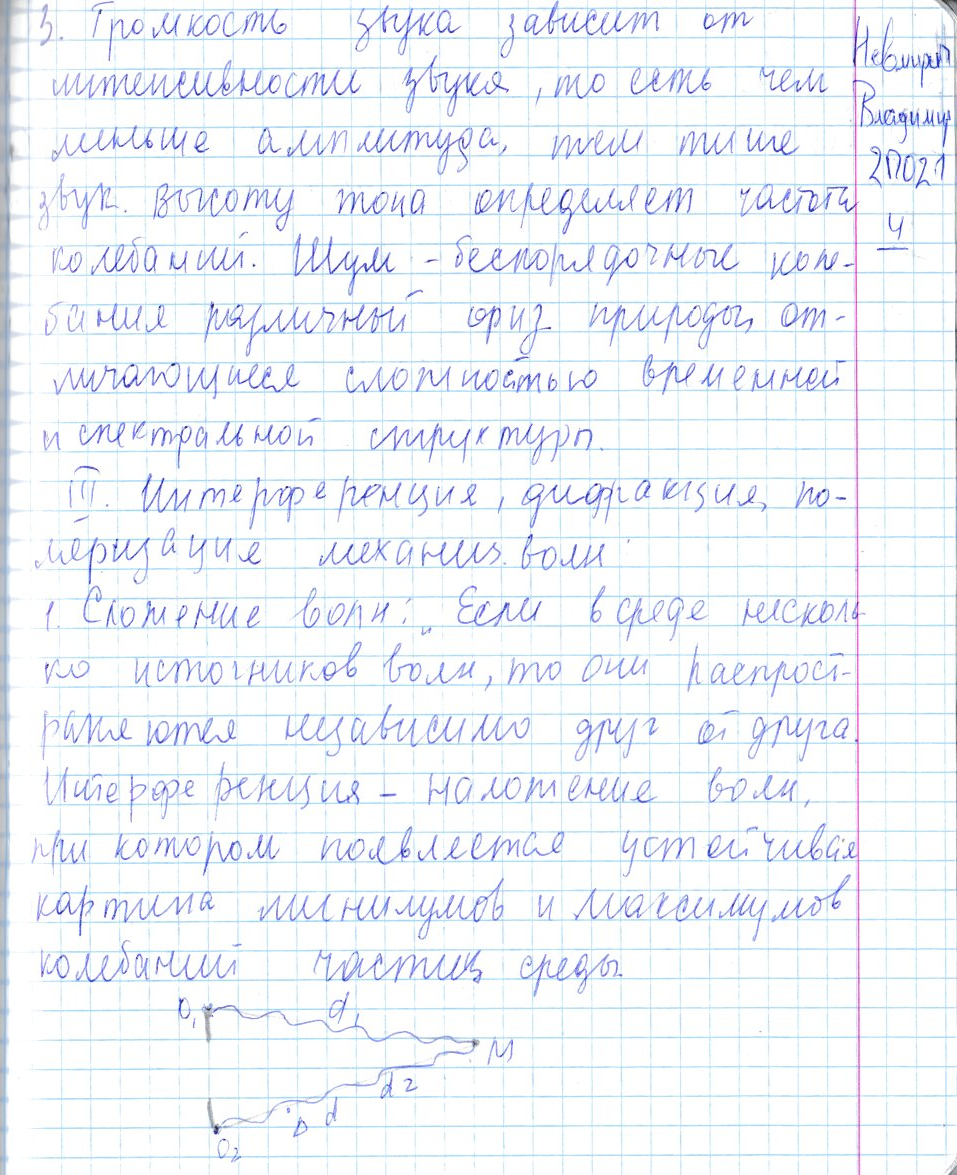 3. Громкость звука зависит от
интенсивности звука, то есть чем
меньше амплитуда, тем тише
звук. Высоту тона определяет частота
колебаний. Шум - беспорядочные коле-
бания различный физ природы, от-
личающиеся сложностью временной
и спектральной структуры.
III. Интерференция, дифракция, по-
ляризация механич. волн
1. Сложение волн: Если в среде несколь-
ко источников волн, то они распрост-
раняются независимо друг от друга.
Интерференция - наложение волн,
при котором появляется устойчивая
картина минимумов и максимумов
колебаний частиц среды
O₁ d₁
M
d₂
Δd
O₂
Владимир
2П021
4